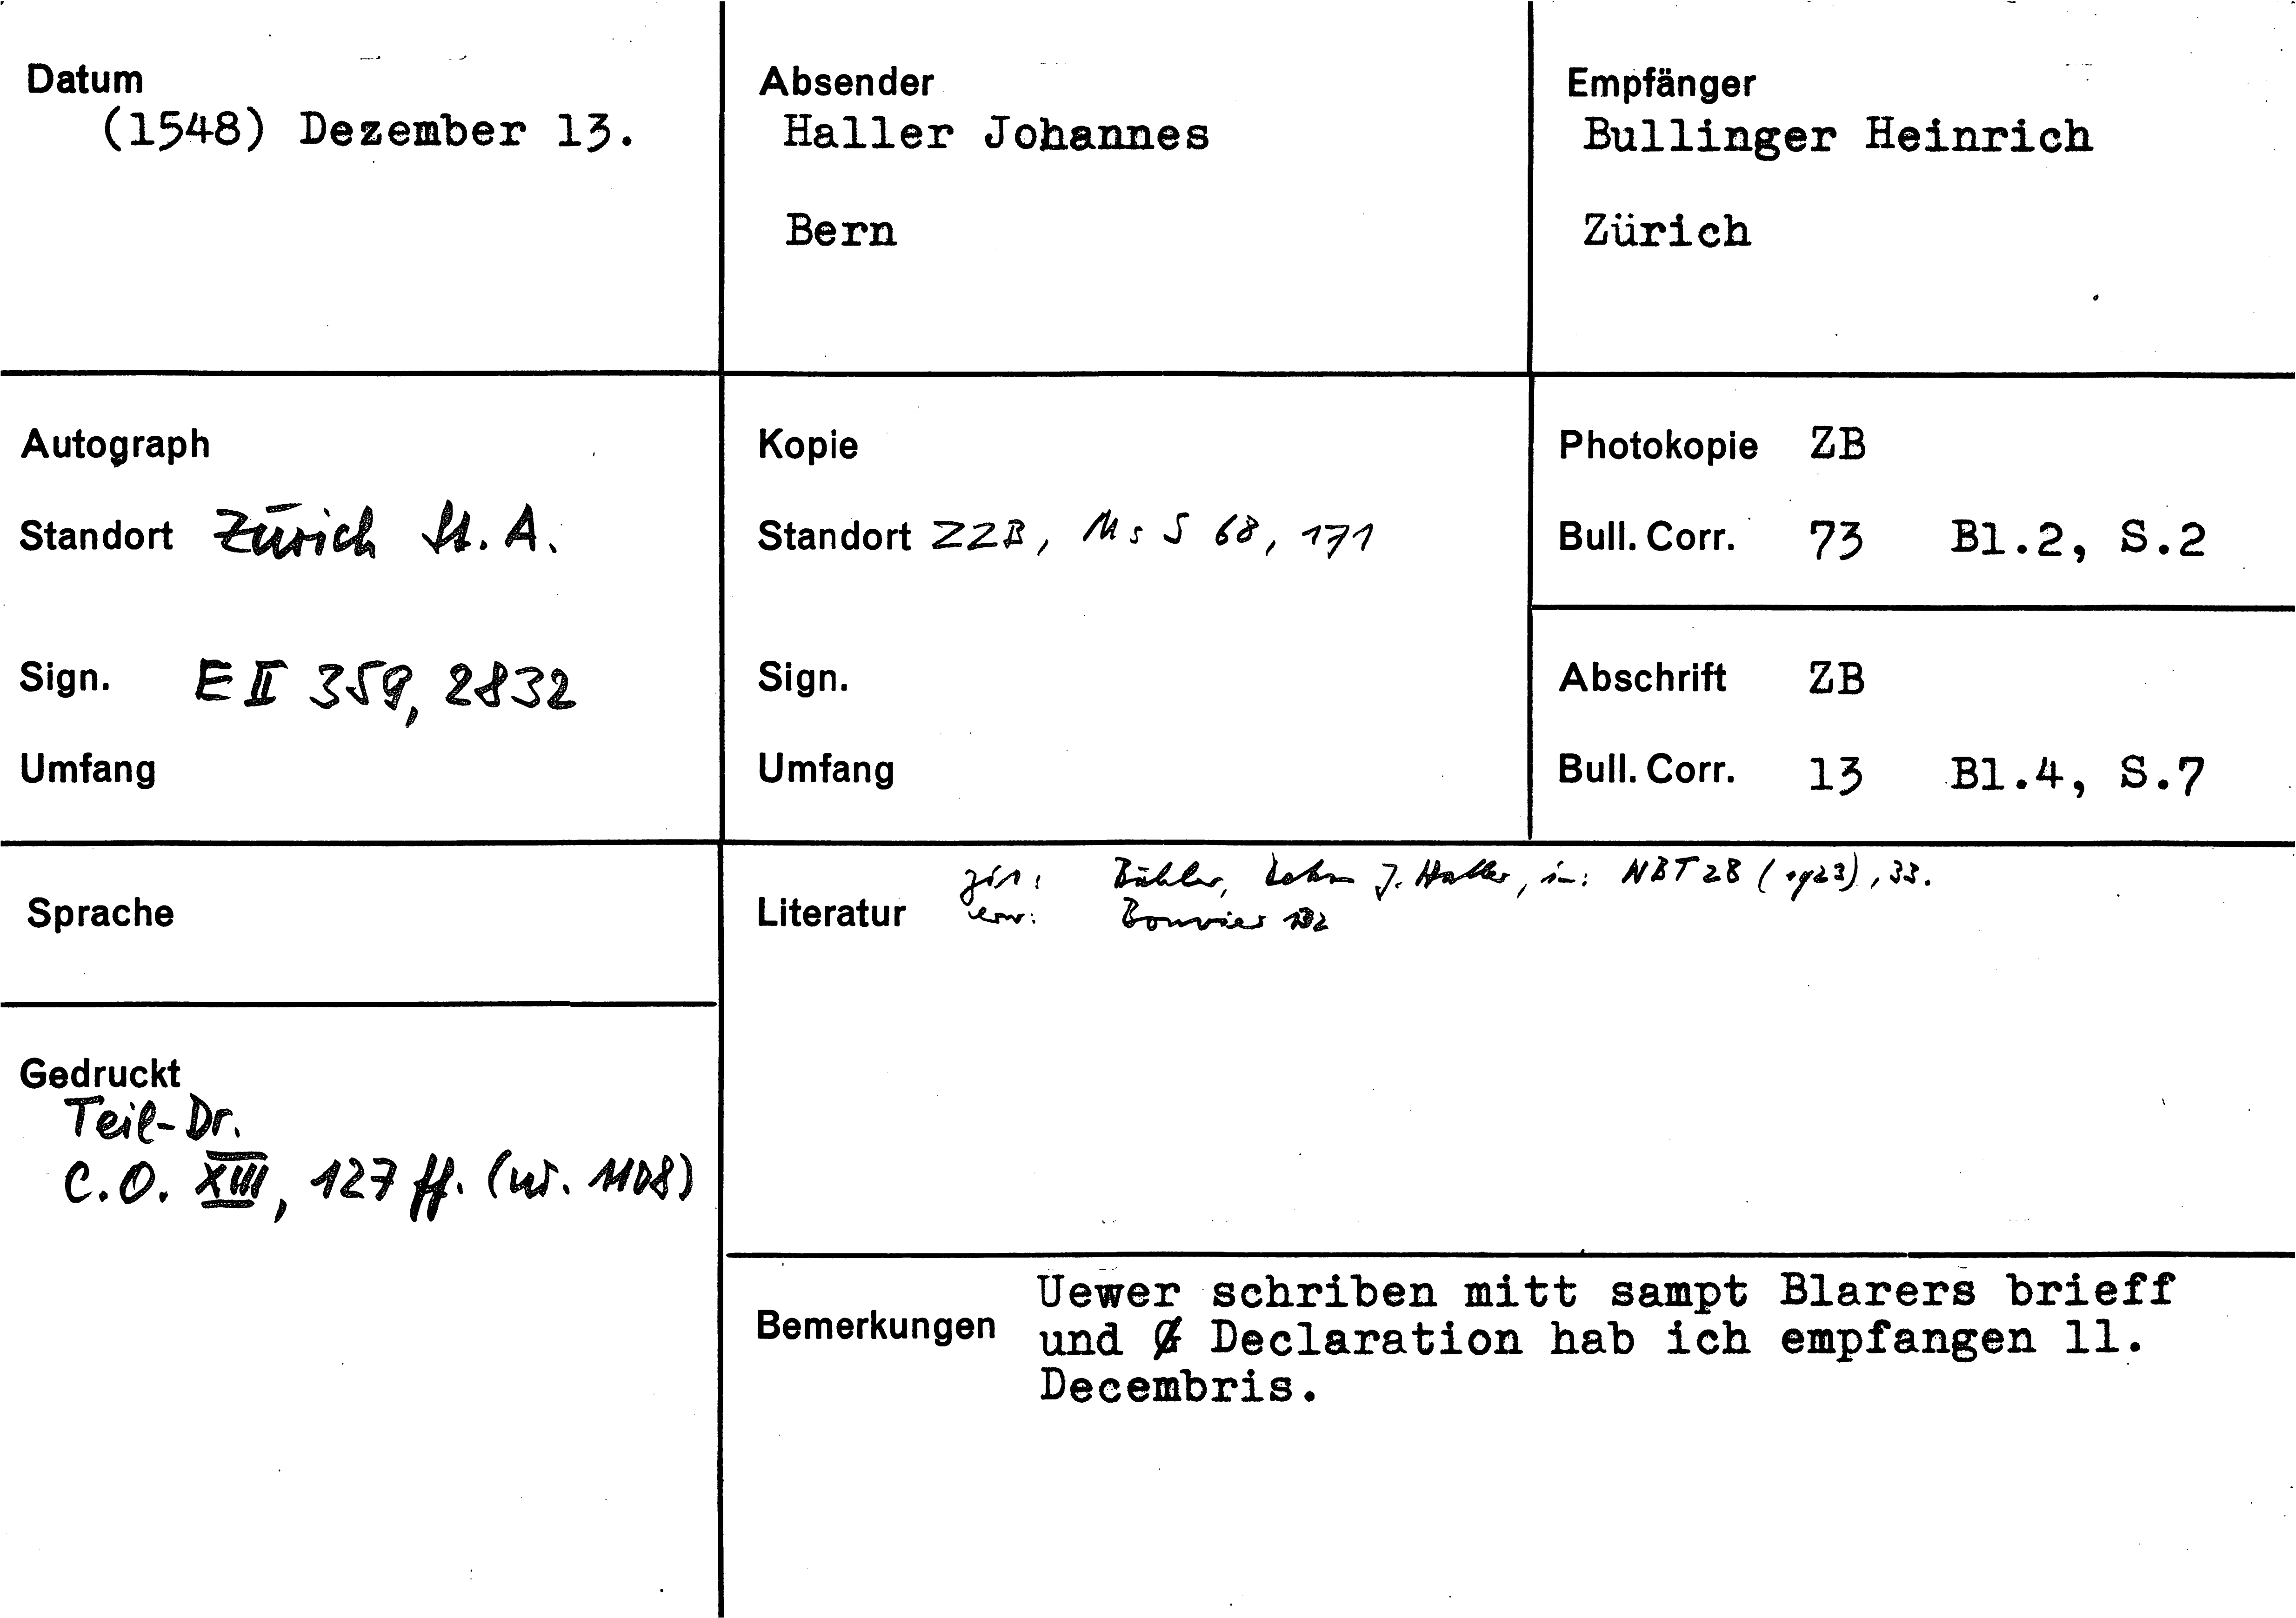 Datum
(1548) Dezember 13.
Absender
Haller Johannes
Bern
Empfänger
Bullinger Heinrich
Zürich
Autograph
Standort Zürich St. A.
Sign. E II 359, 2832
Umfang
Kopie
Standort ZZB, Ms S 68, 171
Sign.
Umfang
Photokopie ZB
Bull. Corr. 73 Bl.2, S.2
Abschrift ZB
Bull. Corr. 13 Bl.4, S.7
Sprache
Gedruckt
Teil-Dr.
C.O. XIII, 127 ff. (nr. 1108)
Literatur
zit: Bühler, J. Haller, in: NBT 28 (1923), 33.
erw: Bouvier 132
Bemerkungen
Uewer schriben mitt sampt Blarers brieff
und Declaration hab ich empfangen 11.
Decembris.